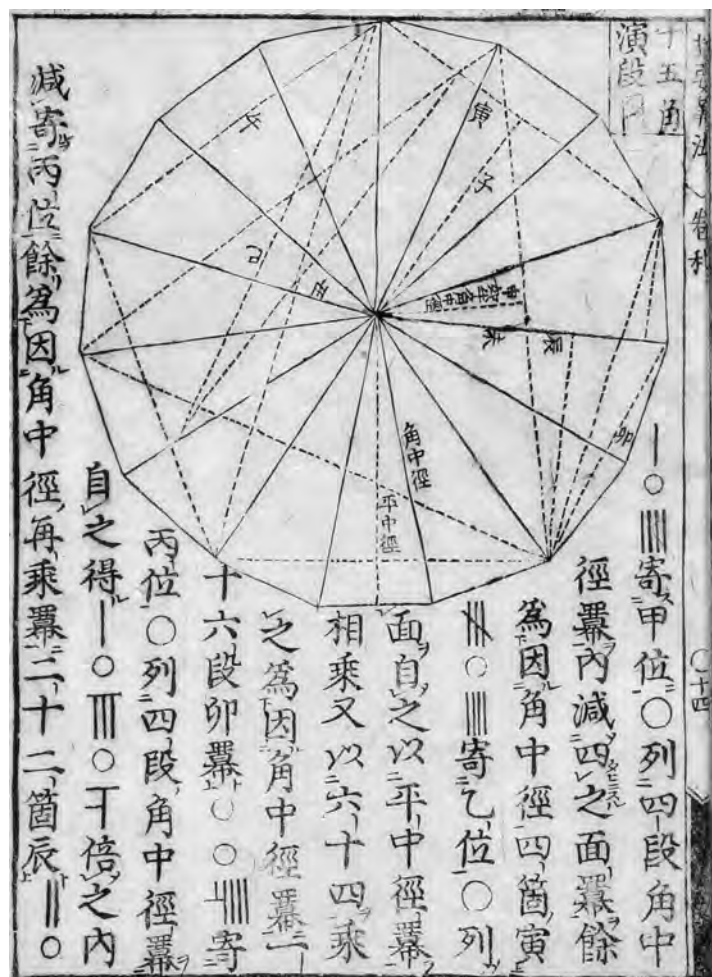 括要算法 卷利
十四
十五角
演段圖
午
寅
巳
丑
未
辰
卯
角中徑
平中徑
|〇||||寄甲位〇列四段角中
徑冪内減四之面冪餘
爲因角中徑四箇寅
〇||||寄乙位〇列
面自之以平中徑冪
相乘又以六十四乘
之爲因角中徑冪一
十六段卯冪〇〇寄
丙位〇列四段角中徑冪
自之得|〇|||〇丅倍之内
減寄丙位餘爲因角中徑再乘冪三十二箇辰||〇